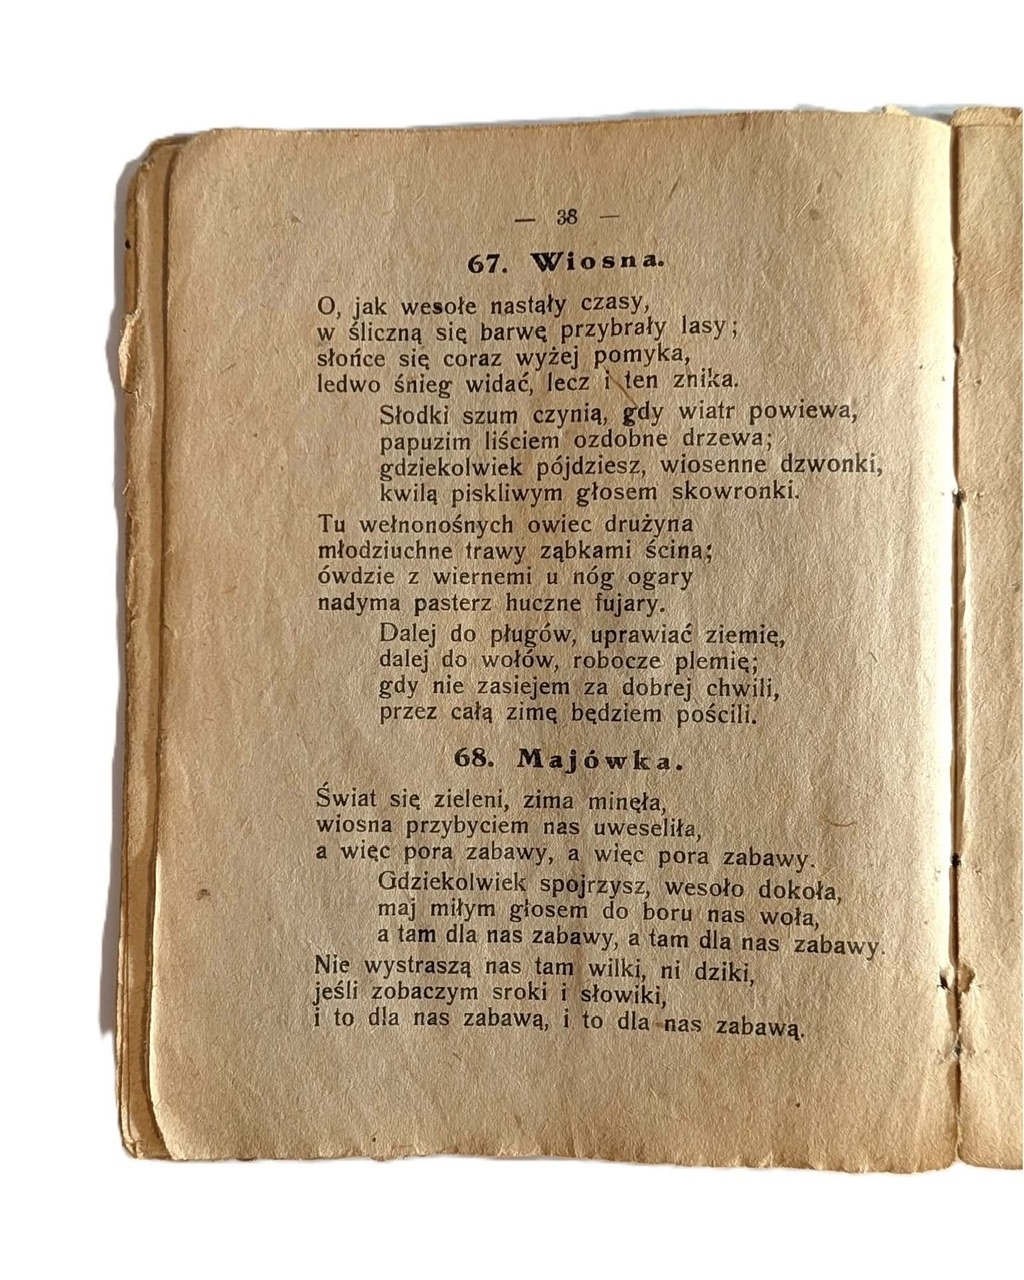 — 38 —
67. Wiosna.
O, jak wesołe nastały czasy,
w śliczną się barwę przybrały lasy;
słońce się coraz wyżej pomyka,
ledwo śnieg widać, lecz i ten znika.
Słodki szum czynią, gdy wiatr powiewa,
papuzim liściem ozdobne drzewa;
gdziekolwiek pójdziesz, wiosenne dzwonki,
kwilą piskliwym głosem skowronki.
Tu wełnonośnych owiec drużyna
młodziuchne trawy ząbkami ścina;
ówdzie z wiernemi u nóg ogary
nadyma pasterz huczne fujary.
Dalej do pługów, uprawiać ziemię,
dalej do wołów, robocze plemię;
gdy nie zasiejem za dobrej chwili,
przez całą zimę będziem pościli.
68. Majówka.
Świat się zieleni, zima minęła,
wiosna przybyciem nas uweseliła,
a więc pora zabawy, a więc pora zabawy.
Gdziekolwiek spojrzysz, wesoło dokoła,
maj miłym głosem do boru nas woła,
a tam dla nas zabawy, a tam dla nas zabawy.
Nie wystraszą nas tam wilki, ni dziki,
jeśli zobaczym sroki i słowiki,
i to dla nas zabawą, i to dla nas zabawą.